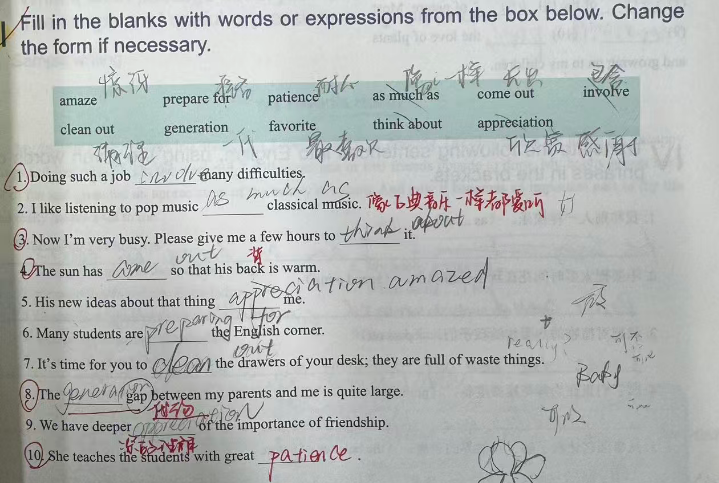 Fill in the blanks with words or expressions from the box below. Change
the form if necessary.
惊讶 耐心 一样 包含
amaze prepare for patience as much as come out involve
clean out generation favorite think about appreciation
一代 最喜欢 欣赏 感谢
1. Doing such a job involve many difficulties.
2. I like listening to pop music as much as classical music. 一样都爱听
3. Now I'm very busy. Please give me a few hours to think about it.
4. The sun has come out so that his back is warm.
5. His new ideas about that thing appreciation amazed me.
6. Many students are preparing for the English corner.
7. It's time for you to clean out the drawers of your desk; they are full of waste things.
really?
Baby
8. The generation gap between my parents and me is quite large.
9. We have deeper appreciation of the importance of friendship.
10. She teaches the students with great patience.